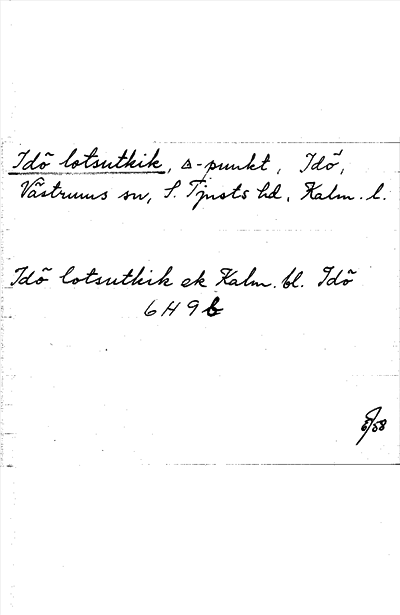 Idö lotsutkik, Δ-punkt, Idö,
Västrums sn, S. Tjusts hd, Kalm. l.
Idö lotsutkik ek Kalm. bl. Idö
6H9b
/58